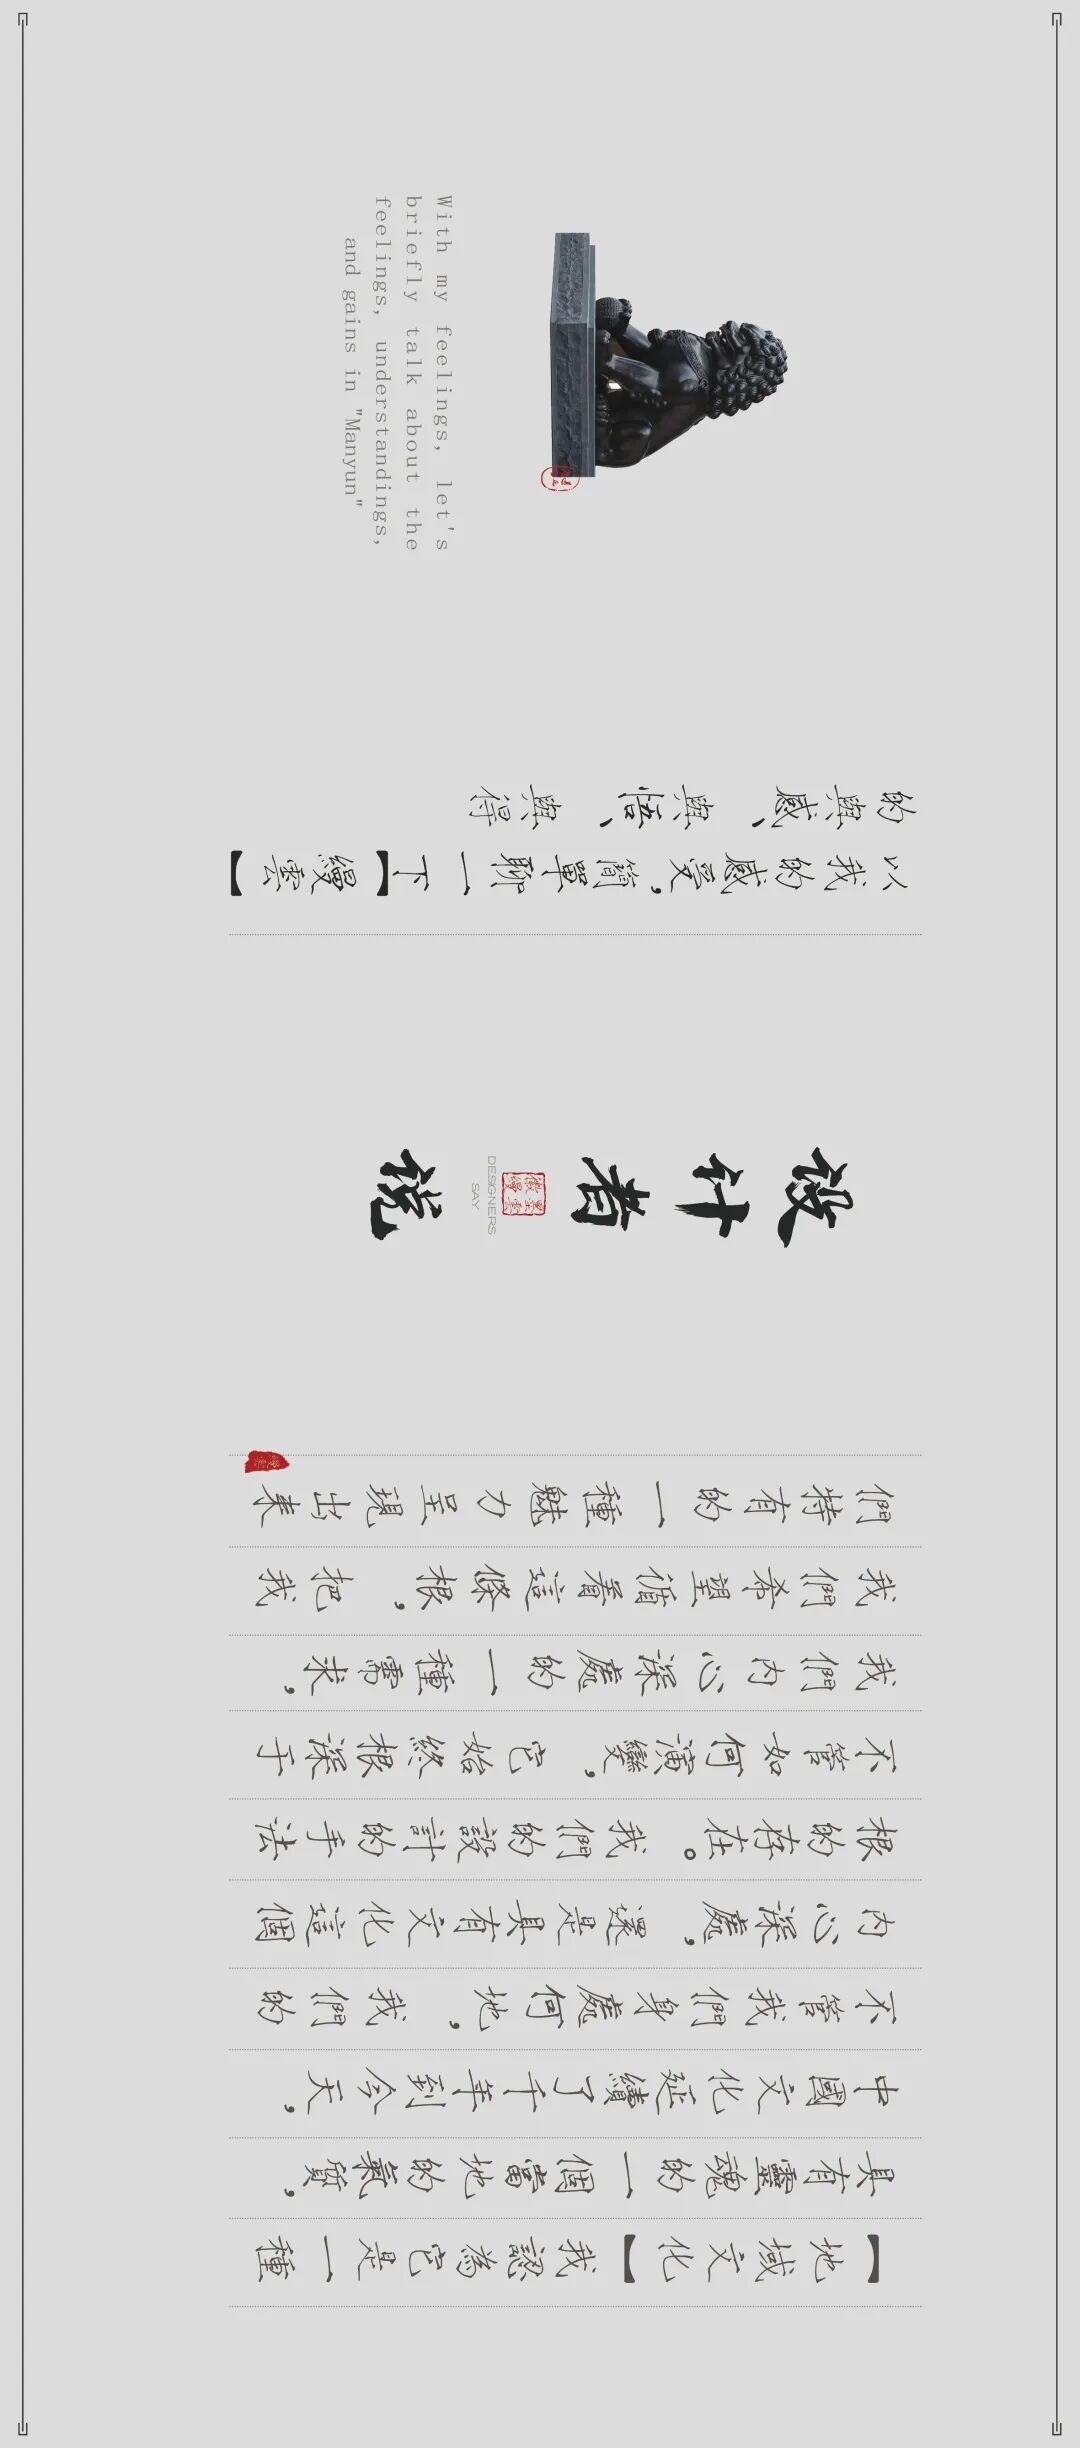 【地域文化】我認為它是一種
具有靈魂的一個當地的氣質，
中國文化延續了千年到今天，
不管我們身處何地，我們的
內心深處，還是具有文化這個
根的存在。我們的設計的手法
不管如何演變，它始終根深于
我們內心深處的一種需求，
我們希望循着這條根，把我
們特有的一種魅力呈現出来
设计者说
DESIGNERS
SAY
以我的感受，簡單聊一下【縵雲】
的與感、與悟、與得
With my feelings, let's
briefly talk about the
feelings, understandings,
and gains in "Manyun"